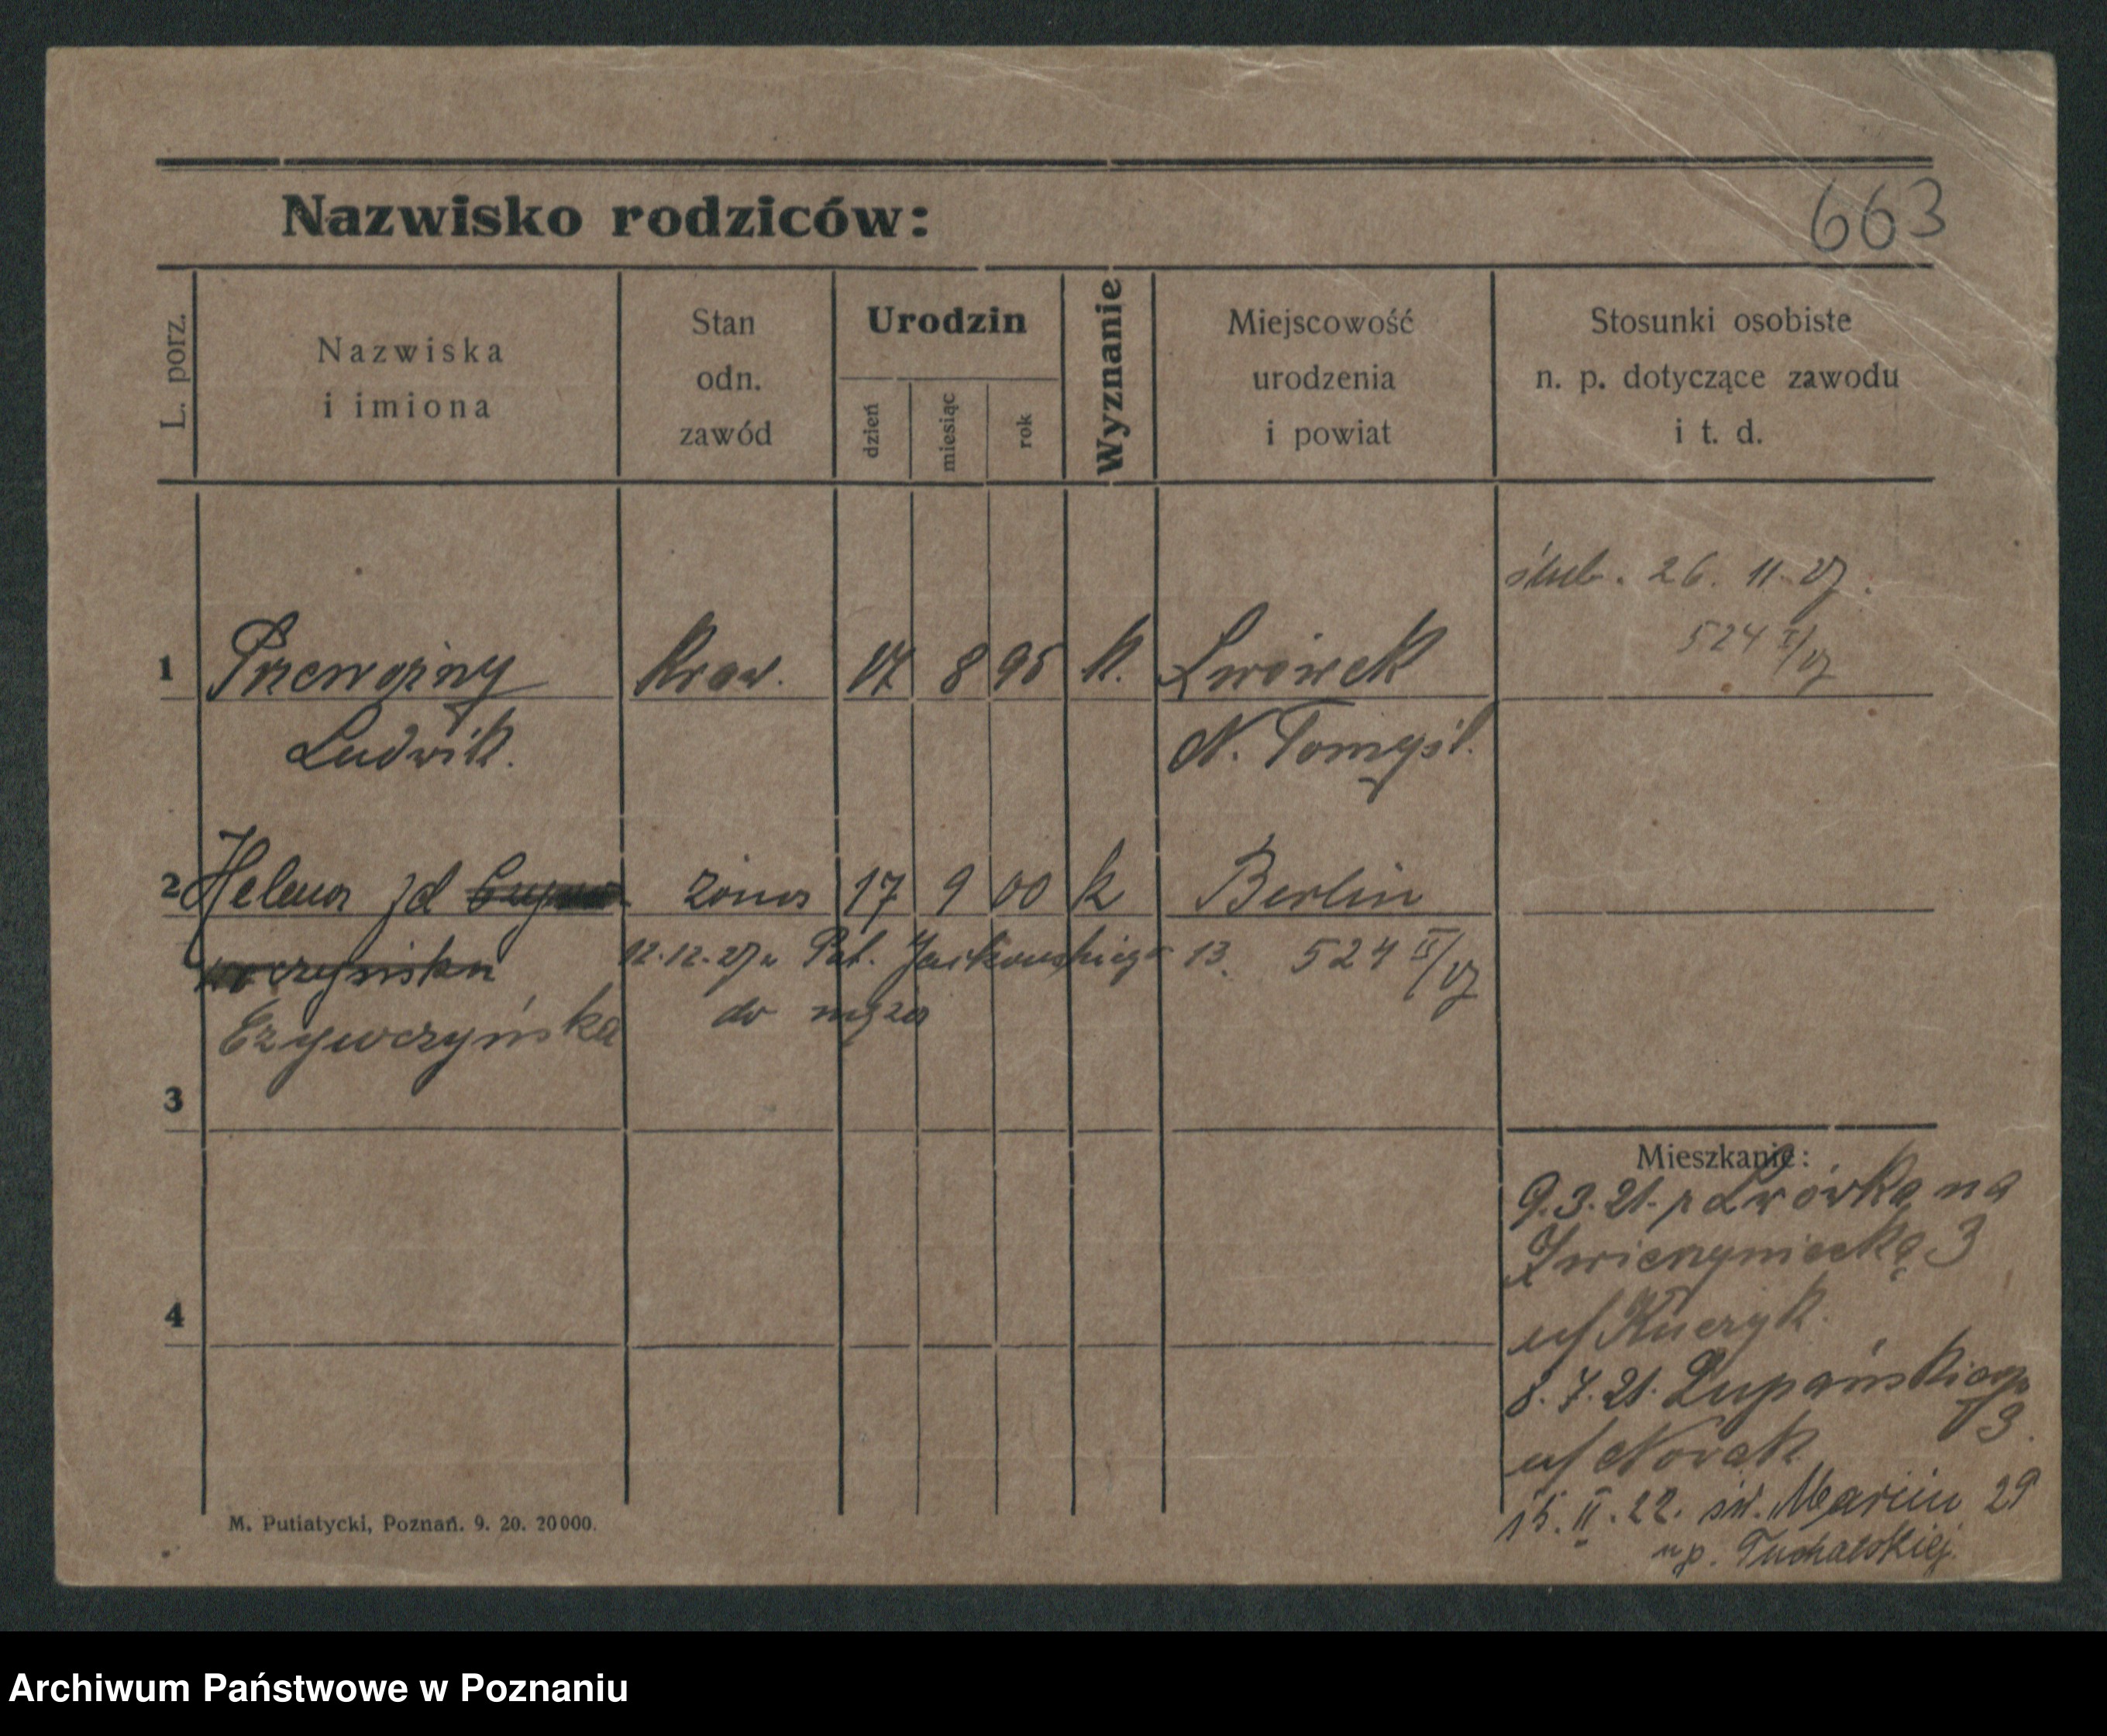 663
Nazwisko rodziców:
L. porz.
Nazwiska
i imiona
Stan
odn.
zawód
Urodzin
dzień
miesiąc
rok
Wyznanie
Miejscowość
urodzenia
i powiat
Stosunki osobiste
n. p. dotyczące zawodu
i t. d.
ślub. 26. 11. 27.
524 II/27
1 Przewoźny Kraw. 17 8 95 K. Lwówek
Ludwik. N. Tomyśl.
2 Helena żona 17 9 00 k Berlin
12.12.27 Jackowskiego 13. 524 II/27
do męża
Czywczyńska
3
4
Mieszkanie:
9.3.21. z Lwówka na
Zwierzyniecką 3
u/ Kuczyk.
8.7.21. Łupańskiego
13.
u/ Nowak
15. II. 22. św. Marcin 29
u p. Tucholskiej
M. Putiatycki, Poznań. 9. 20. 20000.
Archiwum Państwowe w Poznaniu